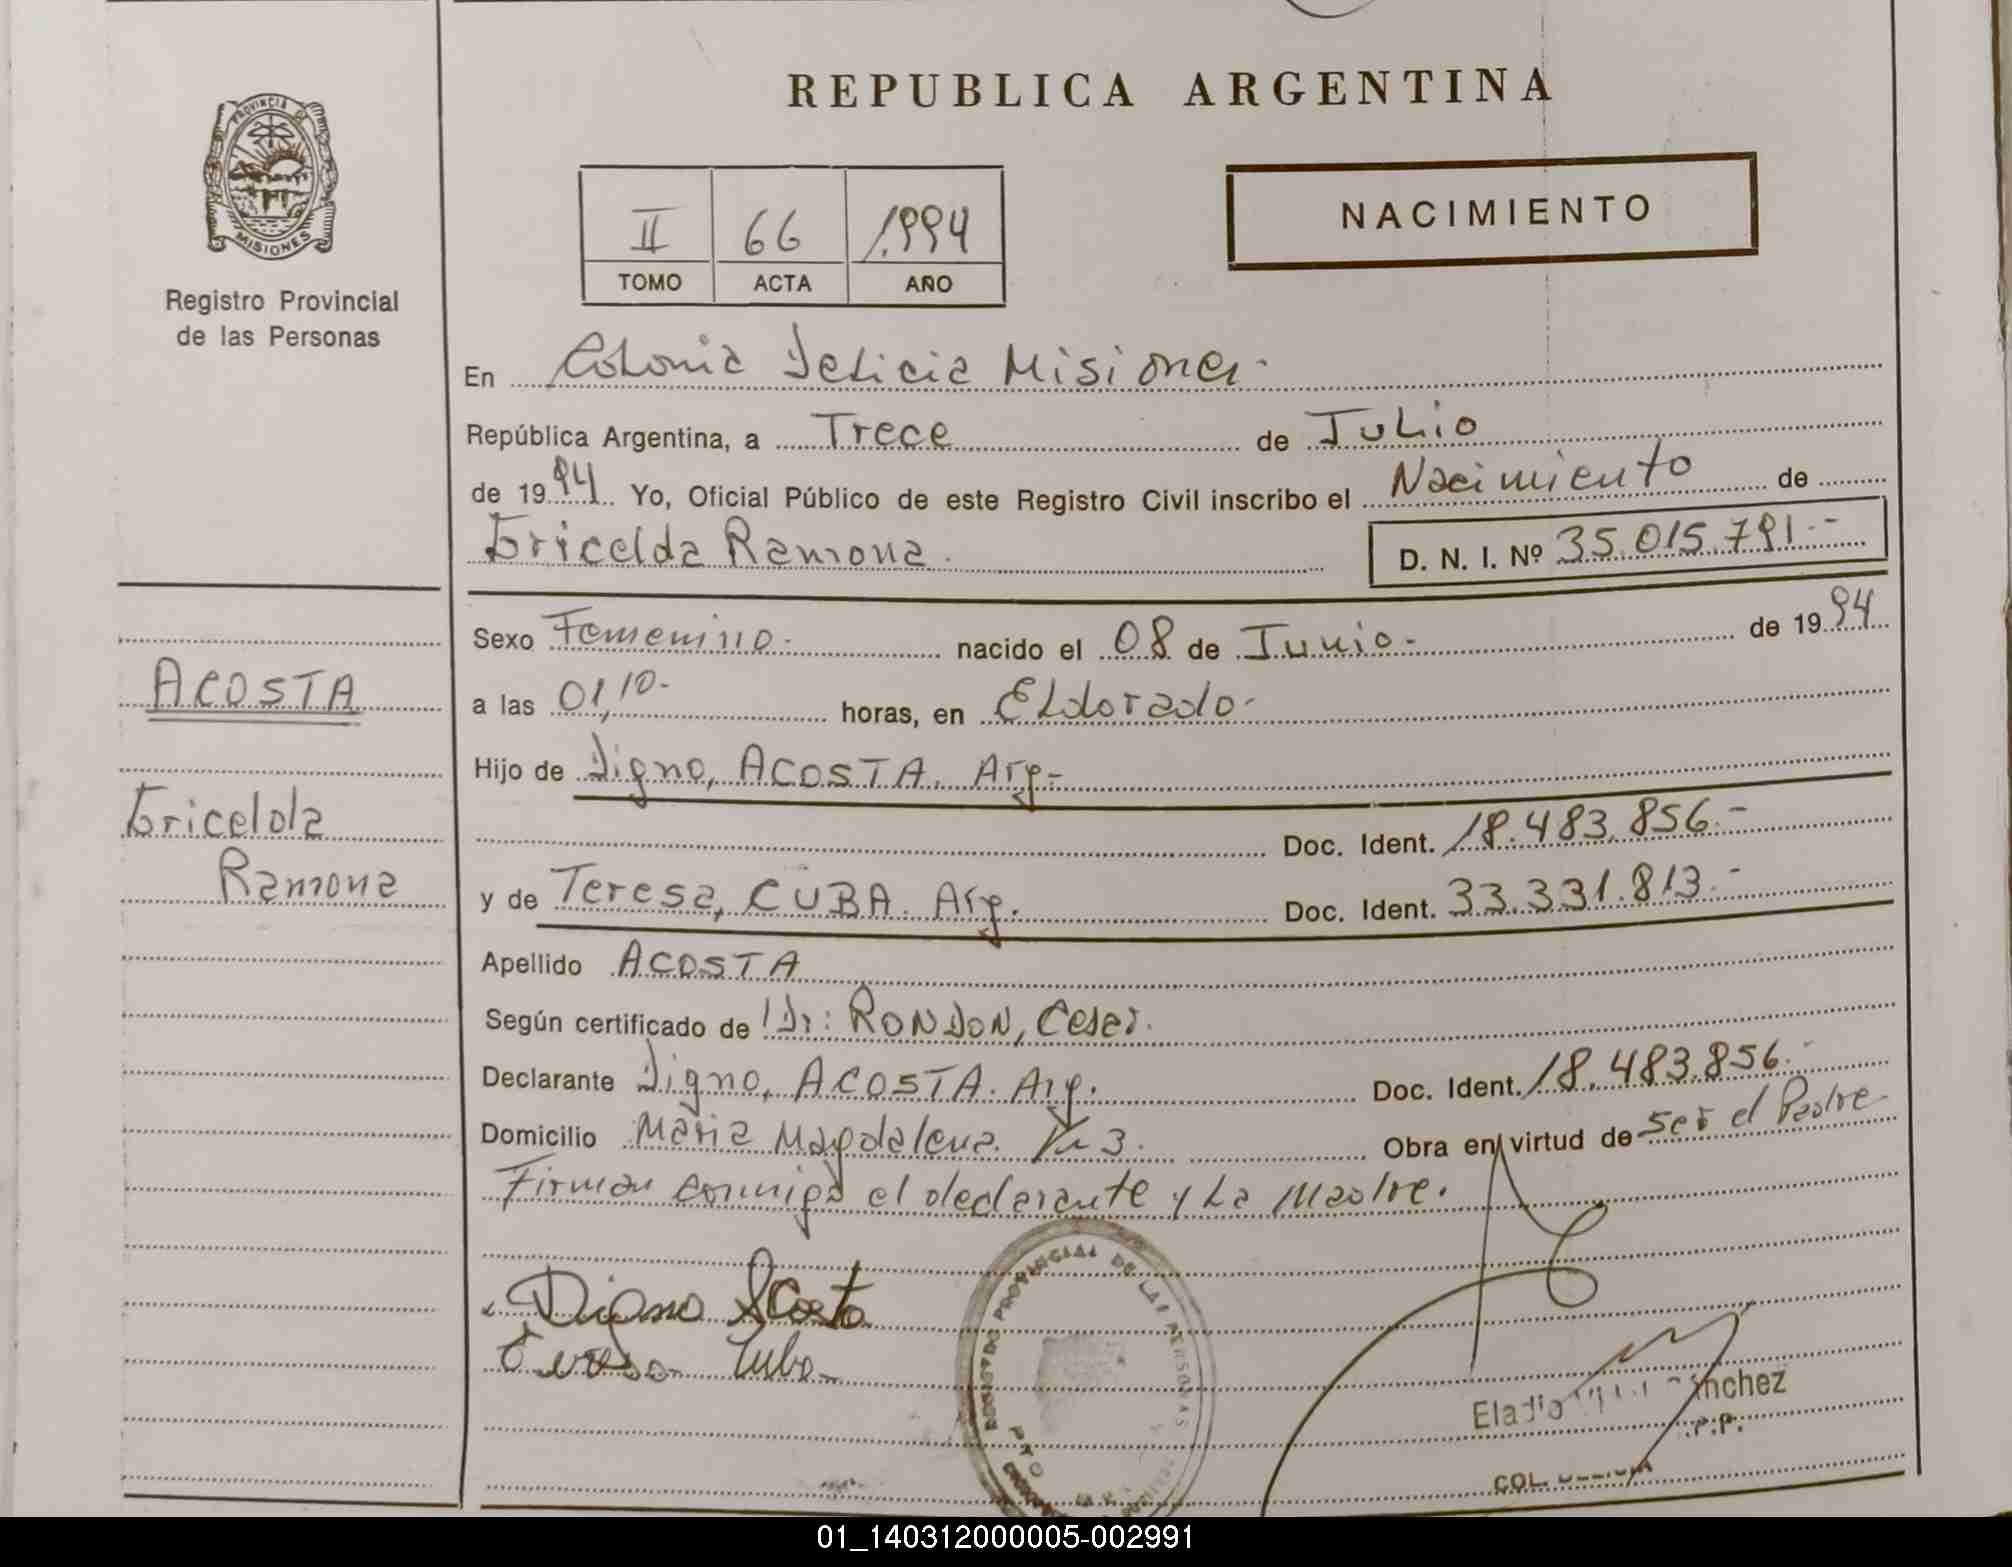 PROVINCIA DE
MISIONES
Registro Provincial
de las Personas
ACOSTA
Gricelda
Ramona
REPUBLICA ARGENTINA
II 66 1.994
TOMO ACTA AÑO
NACIMIENTO
En Colonia Delicia Misiones.-
República Argentina, a Trece de Julio
de 1994 Yo, Oficial Público de este Registro Civil inscribo el Nacimiento de
Gricelda Ramona. D. N. I. Nº 35.015.791.-
Sexo Femenino.- nacido el 08 de Junio.- de 1994
a las 01,10.- horas, en Eldorado.-
Hijo de Digno, ACOSTA. Arg.-
Doc. Ident. 18.483.856.-
y de Teresa, CUBA. Arg. Doc. Ident. 33.331.813.-
Apellido ACOSTA
Según certificado de Dr: RONDON, Cesar.
Declarante Digno, ACOSTA. Arg. Doc. Ident. 18.483.856.-
Domicilio Maria Magdalena Km 3. Obra en virtud de ser el Padre.
Firman conmigo el declarante y La Madre.
Digno Acosta
Teresa Cuba
REGISTRO PROVINCIAL DE LAS PERSONAS
Eladio Sánchez
COL. DELICIA
01_140312000005-002991